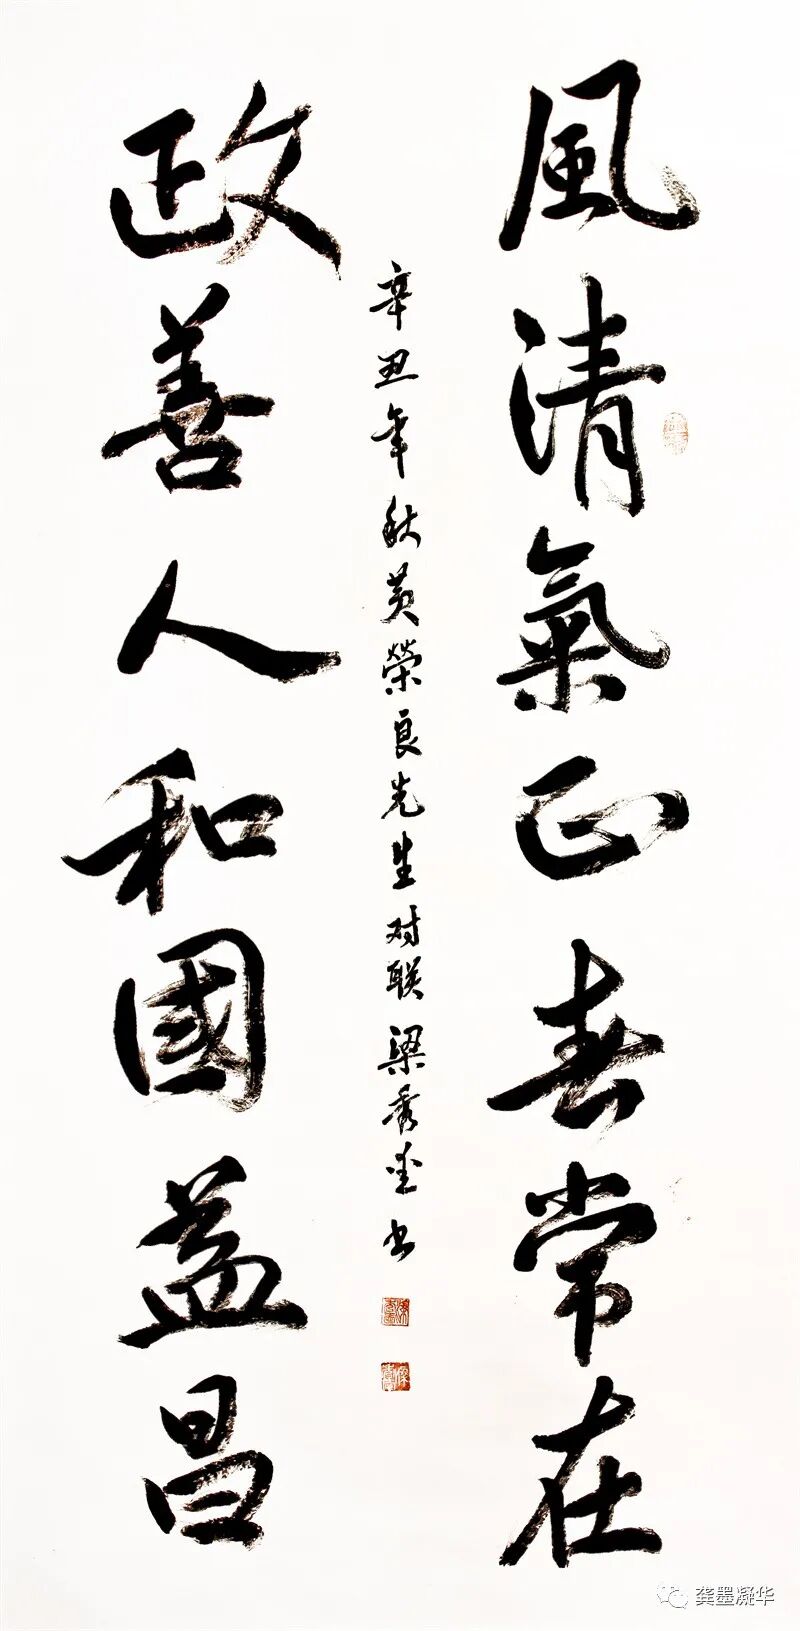 風清氣正春常在
政善人和國益昌
辛丑年秋黄榮良先生对联梁秀奎书
龚墨凝华